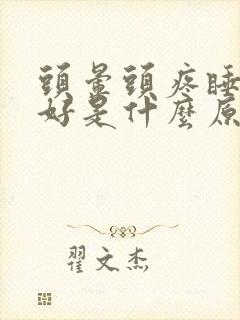 頭暈頭疼睡
好是什麼原
翟文杰